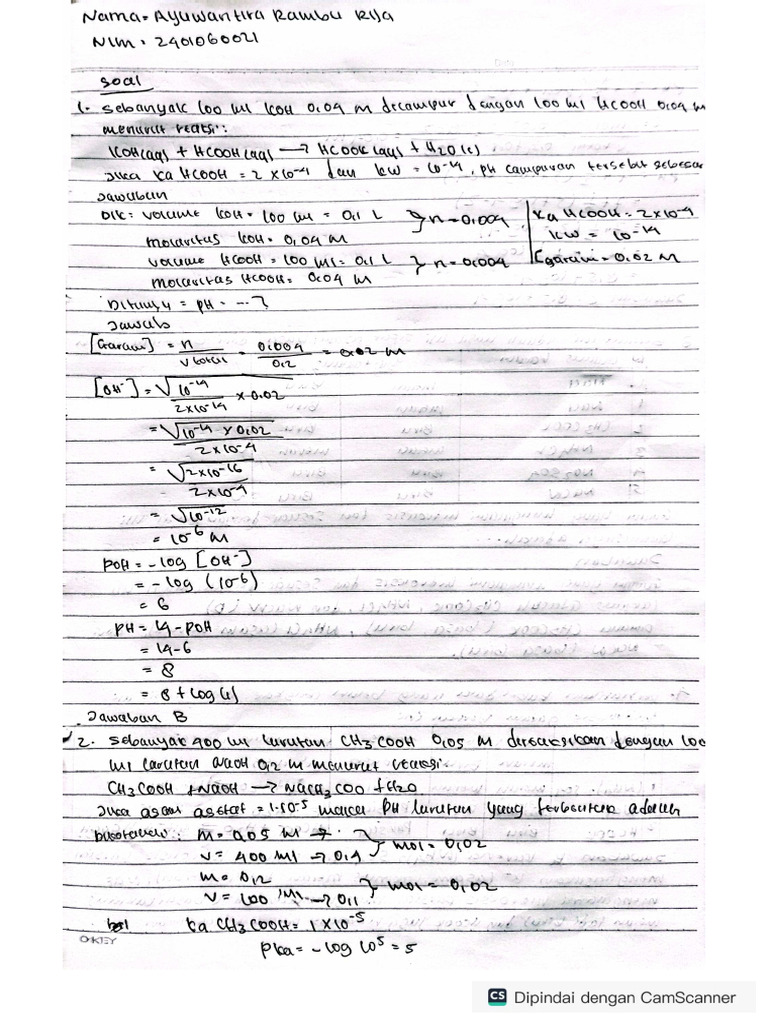 Nama = Ayuwantira Rambu Kija
NIM = 2401060021
soal
1. Sebanyak 100 ml KOH 0,04 M dicampur dengan 100 ml HCOOH 0,04 M
menurut reaksi:
KOH(aq) + HCOOH(aq) → HCOOK(aq) + H2O(l)
Jika Ka HCOOH = 2 x 10-4 dan Kw = 10-14, PH campuran tersebut sebesar
Jawaban
Dik: Volume KOH = 100 ml = 0,1 L } n = 0,004 | Ka HCOOH = 2x10-4
molaritas KOH = 0,04 M | Kw = 10-14
volume HCOOH = 100 ml = 0,1 L } n = 0,004 | [garam] = 0,02 M
molaritas HCOOH = 0,04 M
Ditanya = PH = ...?
Jawab
[Garam] = n / V total = 0,004 / 0,2 = 0,02 M
[OH-] = √10-14 / 2x10-14 x 0,02
= √10-14 x 0,02 / 2x10-4
= √2x10-16 / 2x10-4
= √10-12
= 10-6 M
POH = -log [OH-]
= -log (10-6)
= 6
PH = 14 - POH
= 14-6
= 8
= 8 + log(1)
Jawaban B
2. Sebanyak 400 ml larutan CH3COOH 0,05 M direaksikan dengan 100
ml larutan NaOH 0,2 M menurut reaksi.
CH3COOH + NaOH → NaCH3COO + H2O
Jika asam asetat = 1.10-5 maka PH larutan yang terbentuk adalah
M = 0,05 M → } mol = 0,02
V = 400 Ml → 0,4
M = 0,2 } mol = 0,02
V = 100 Ml → 0,1
Ka CH3COOH = 1 x 10-5
PKa = -log 105 = 5
OKEY
CS Dipindai dengan CamScanner